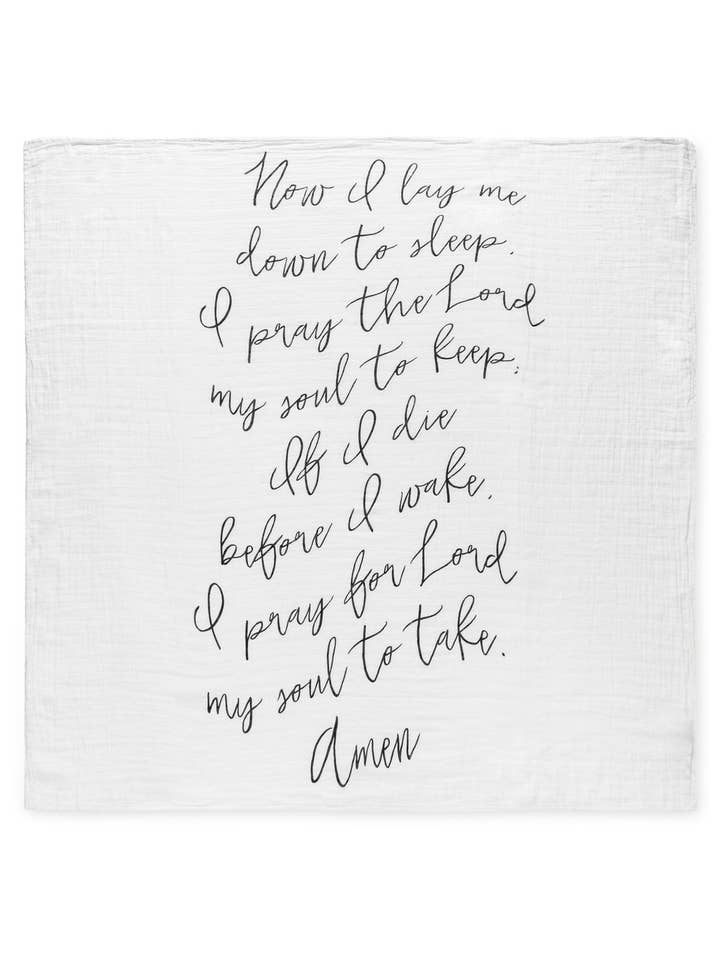 Now I lay me
down to sleep.
I pray the Lord
my soul to keep;
If I die
before I wake.
I pray for Lord
my soul to take.
Amen